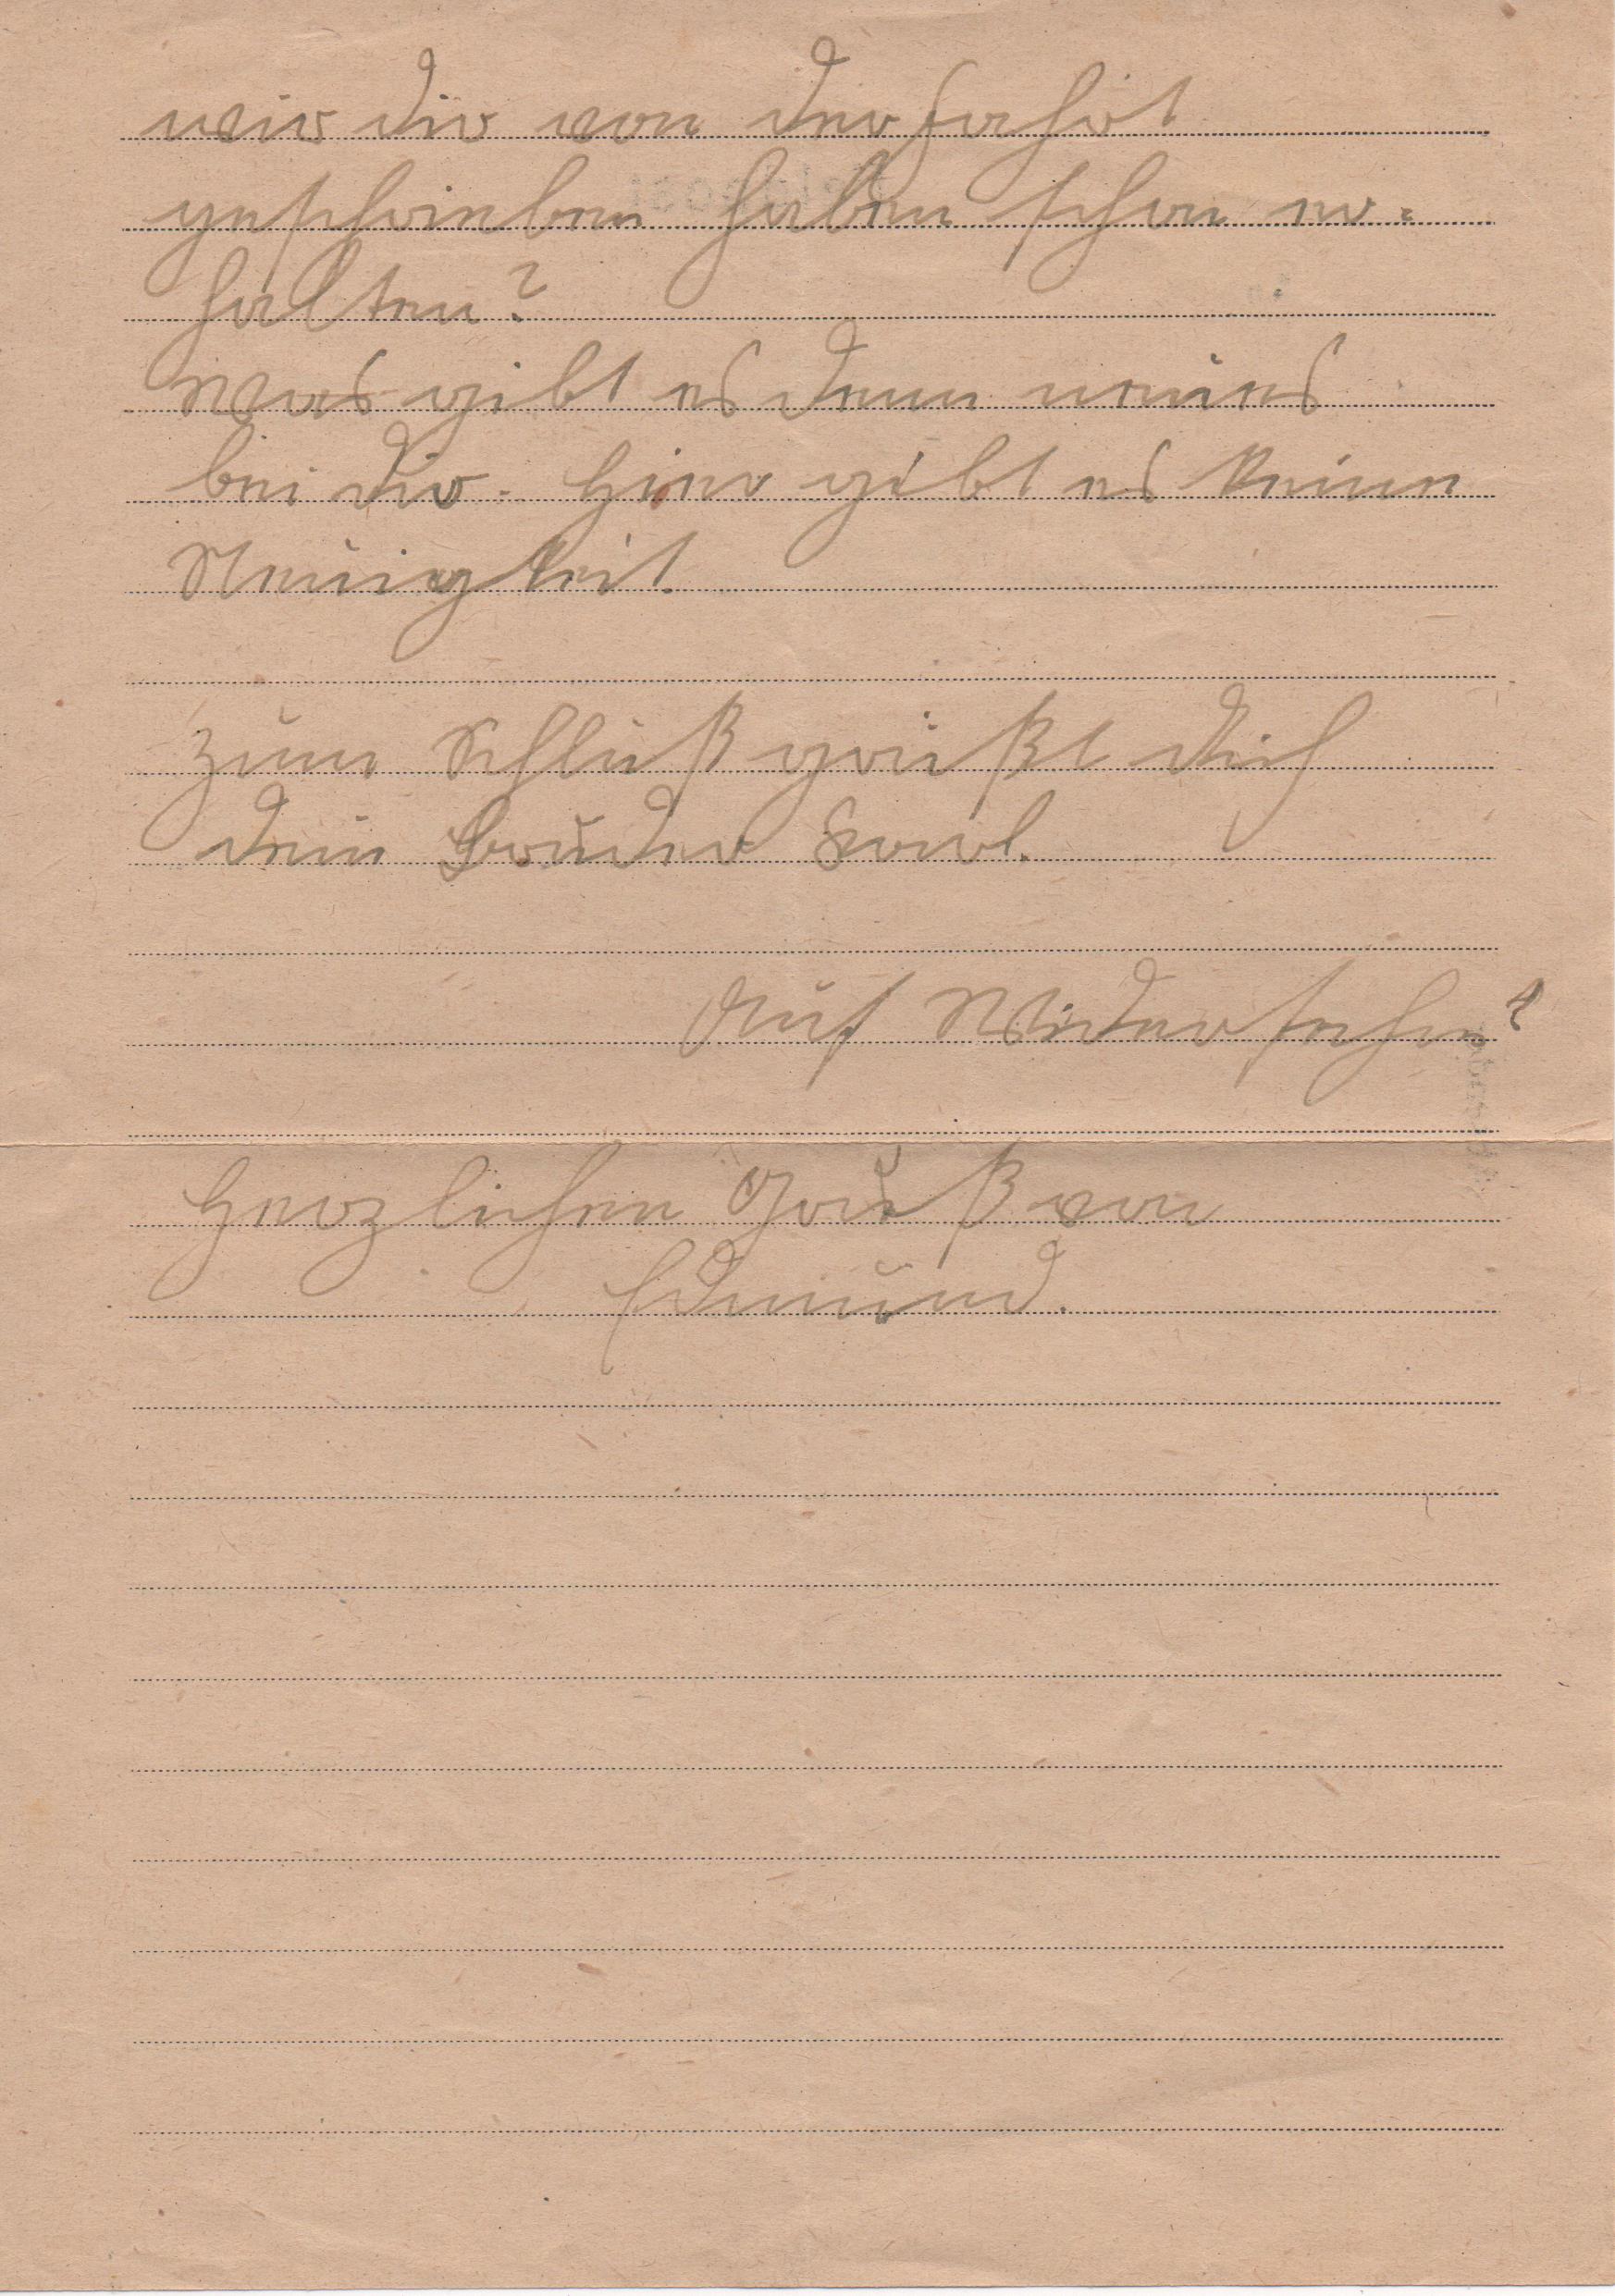 wir dir von der fahrt
geschrieben haben schon er-
halten?
Was gibt es denn neues
bei dir. Hier gibt es keine
Neuigkeit.
Zum Schluß grüßt dich
dein Bruder Karl.
Auf Widersehn
Herzlichen Gruß von
Edmund.